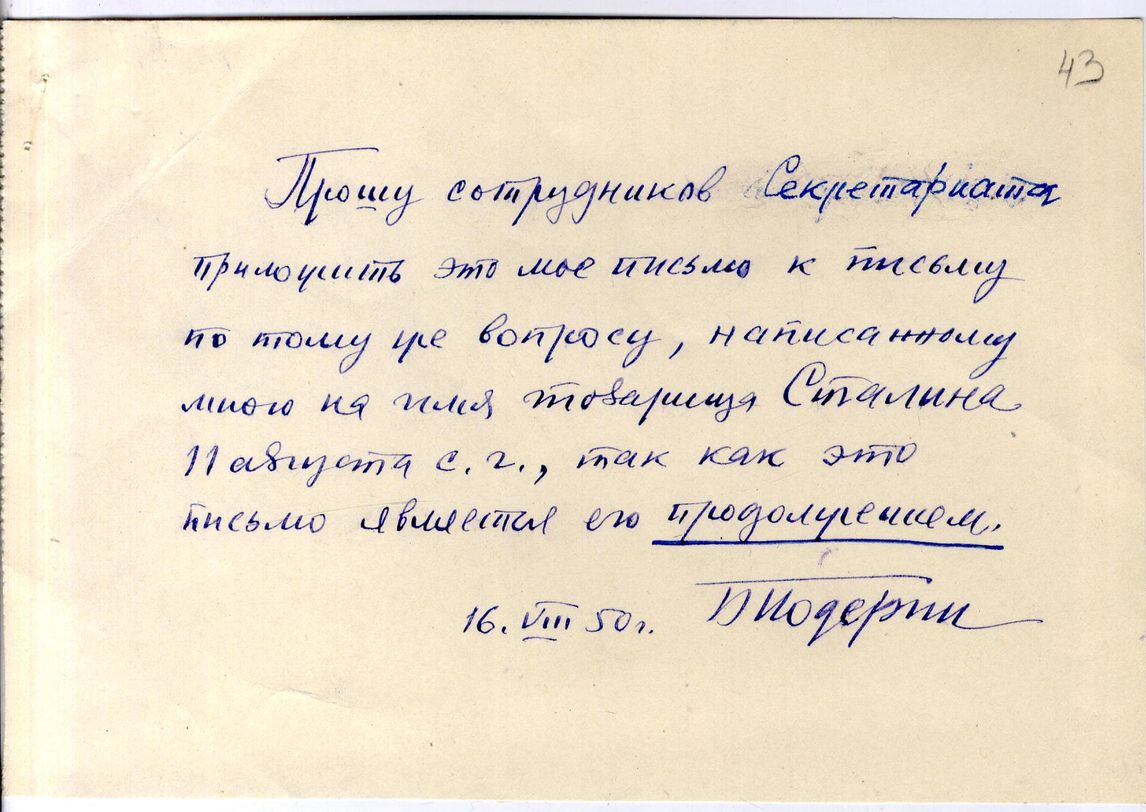 43
Прошу сотрудников Секретариата
приложить это мое письмо к письму
по тому же вопросу, написанному
мною на имя товарища Сталина
11 августа с. г., так как это
письмо является его продолжением.
16. VIII 50 г.